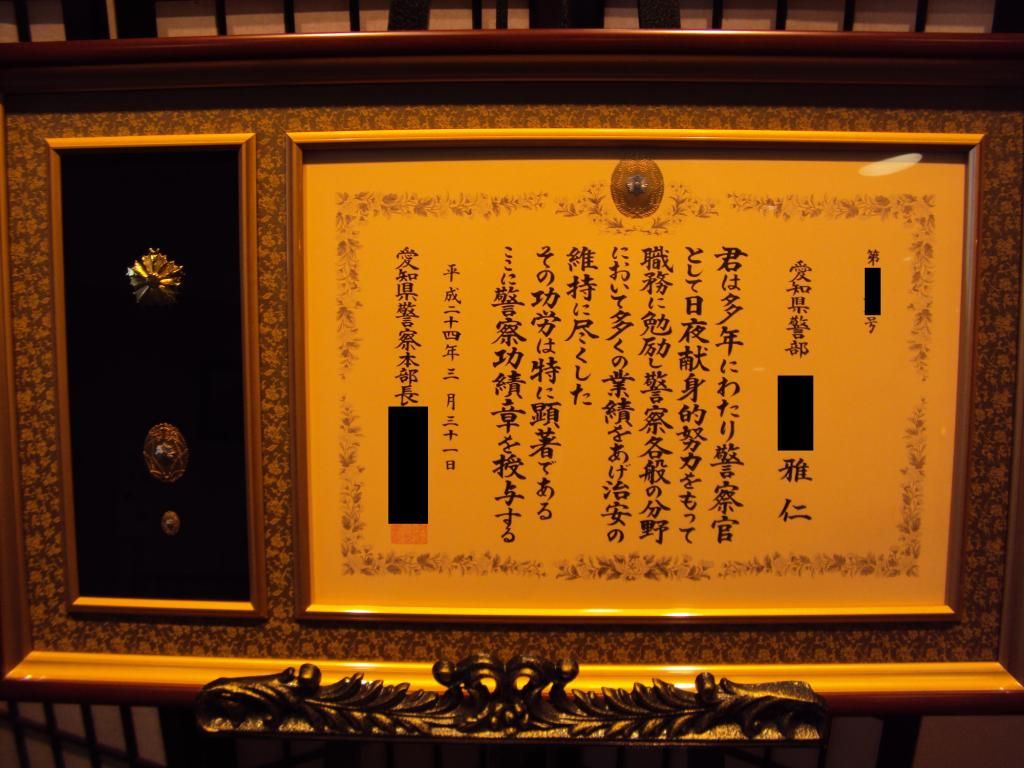 第号
愛知県警部 雅仁
君は多年にわたり警察官
として日夜献身的努力をもって
職務に勉励し警察各般の分野
において多くの業績をあげ治安の
維持に尽くした
その功労は特に顕著である
ここに警察功績章を授与する
平成二十四年三月三十一日
愛知県警察本部長